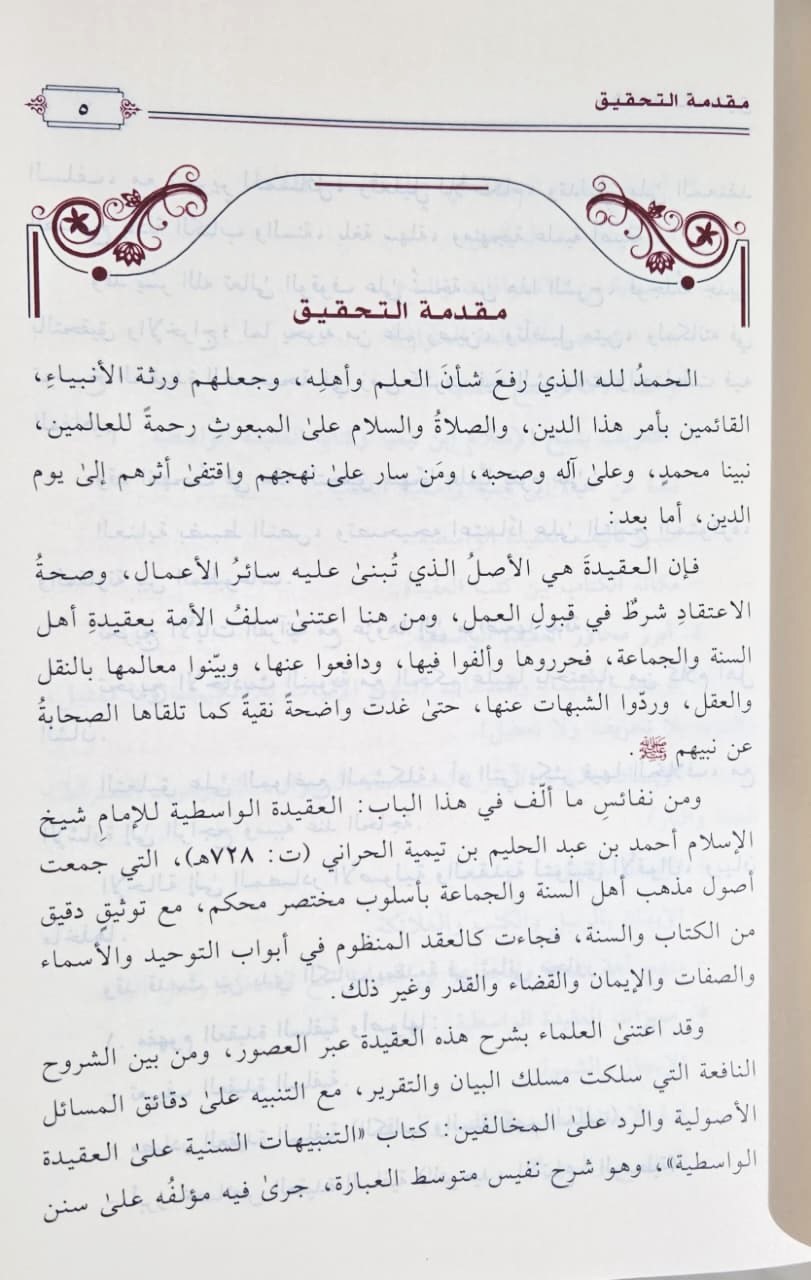 مقدمة التحقيق
٥
مقدمة التحقيق
الحمدُ لله الذي رفعَ شأنَ العلم وأهلِه، وجعلهم ورثة الأنبياءِ،
القائمين بأمر هذا الدين، والصلاةُ والسلام علىٰ المبعوث رحمةً للعالمين،
نبينا محمدٍ، وعلىٰ آله وصحبه، ومَن سار علىٰ نهجهم واقتفىٰ أثرهم إلىٰ يوم
الدين، أما بعد:
فإن العقيدةَ هي الأصلُ الذي تُبنىٰ عليه سائرُ الأعمال، وصحةُ
الاعتقادِ شرطٌ في قبولِ العمل، ومن هنا اعتنىٰ سلفُ الأمة بعقيدةِ أهل
السنة والجماعة، فحرروها وألفوا فيها، ودافعوا عنها، وبيّنوا معالمها بالنقل
والعقل، وردّوا الشبهات عنها، حتىٰ غدتْ واضحةً نقيةً كما تلقاها الصحابةُ
عن نبيهم ﷺ.
ومن نفائسِ ما ألّف في هذا الباب: العقيدة الواسطية للإمام شيخ
الإسلام أحمد بن عبد الحليم بن تيمية الحراني (ت: ٧٢٨هـ)، التي جمعت
أصول مذهب أهل السنة والجماعة بأسلوب مختصر محكم، مع توثيقٍ دقيق
من الكتاب والسنة، فجاءت كالعقد المنظوم في أبواب التوحيد والأسماء
والصفات والإيمان والقضاء والقدر وغير ذلك.
وقد اعتنىٰ العلماء بشرح هذه العقيدة عبر العصور، ومن بين الشروح
النافعة التي سلكت مسلك البيان والتقرير، مع التنبيه علىٰ دقائق المسائل
الأصولية والرد علىٰ المخالفين: كتاب «التنبيهات السنية علىٰ العقيدة
الواسطية»، وهو شرح نفيس متوسط العبارة، جرىٰ فيه مؤلفُه علىٰ سنن